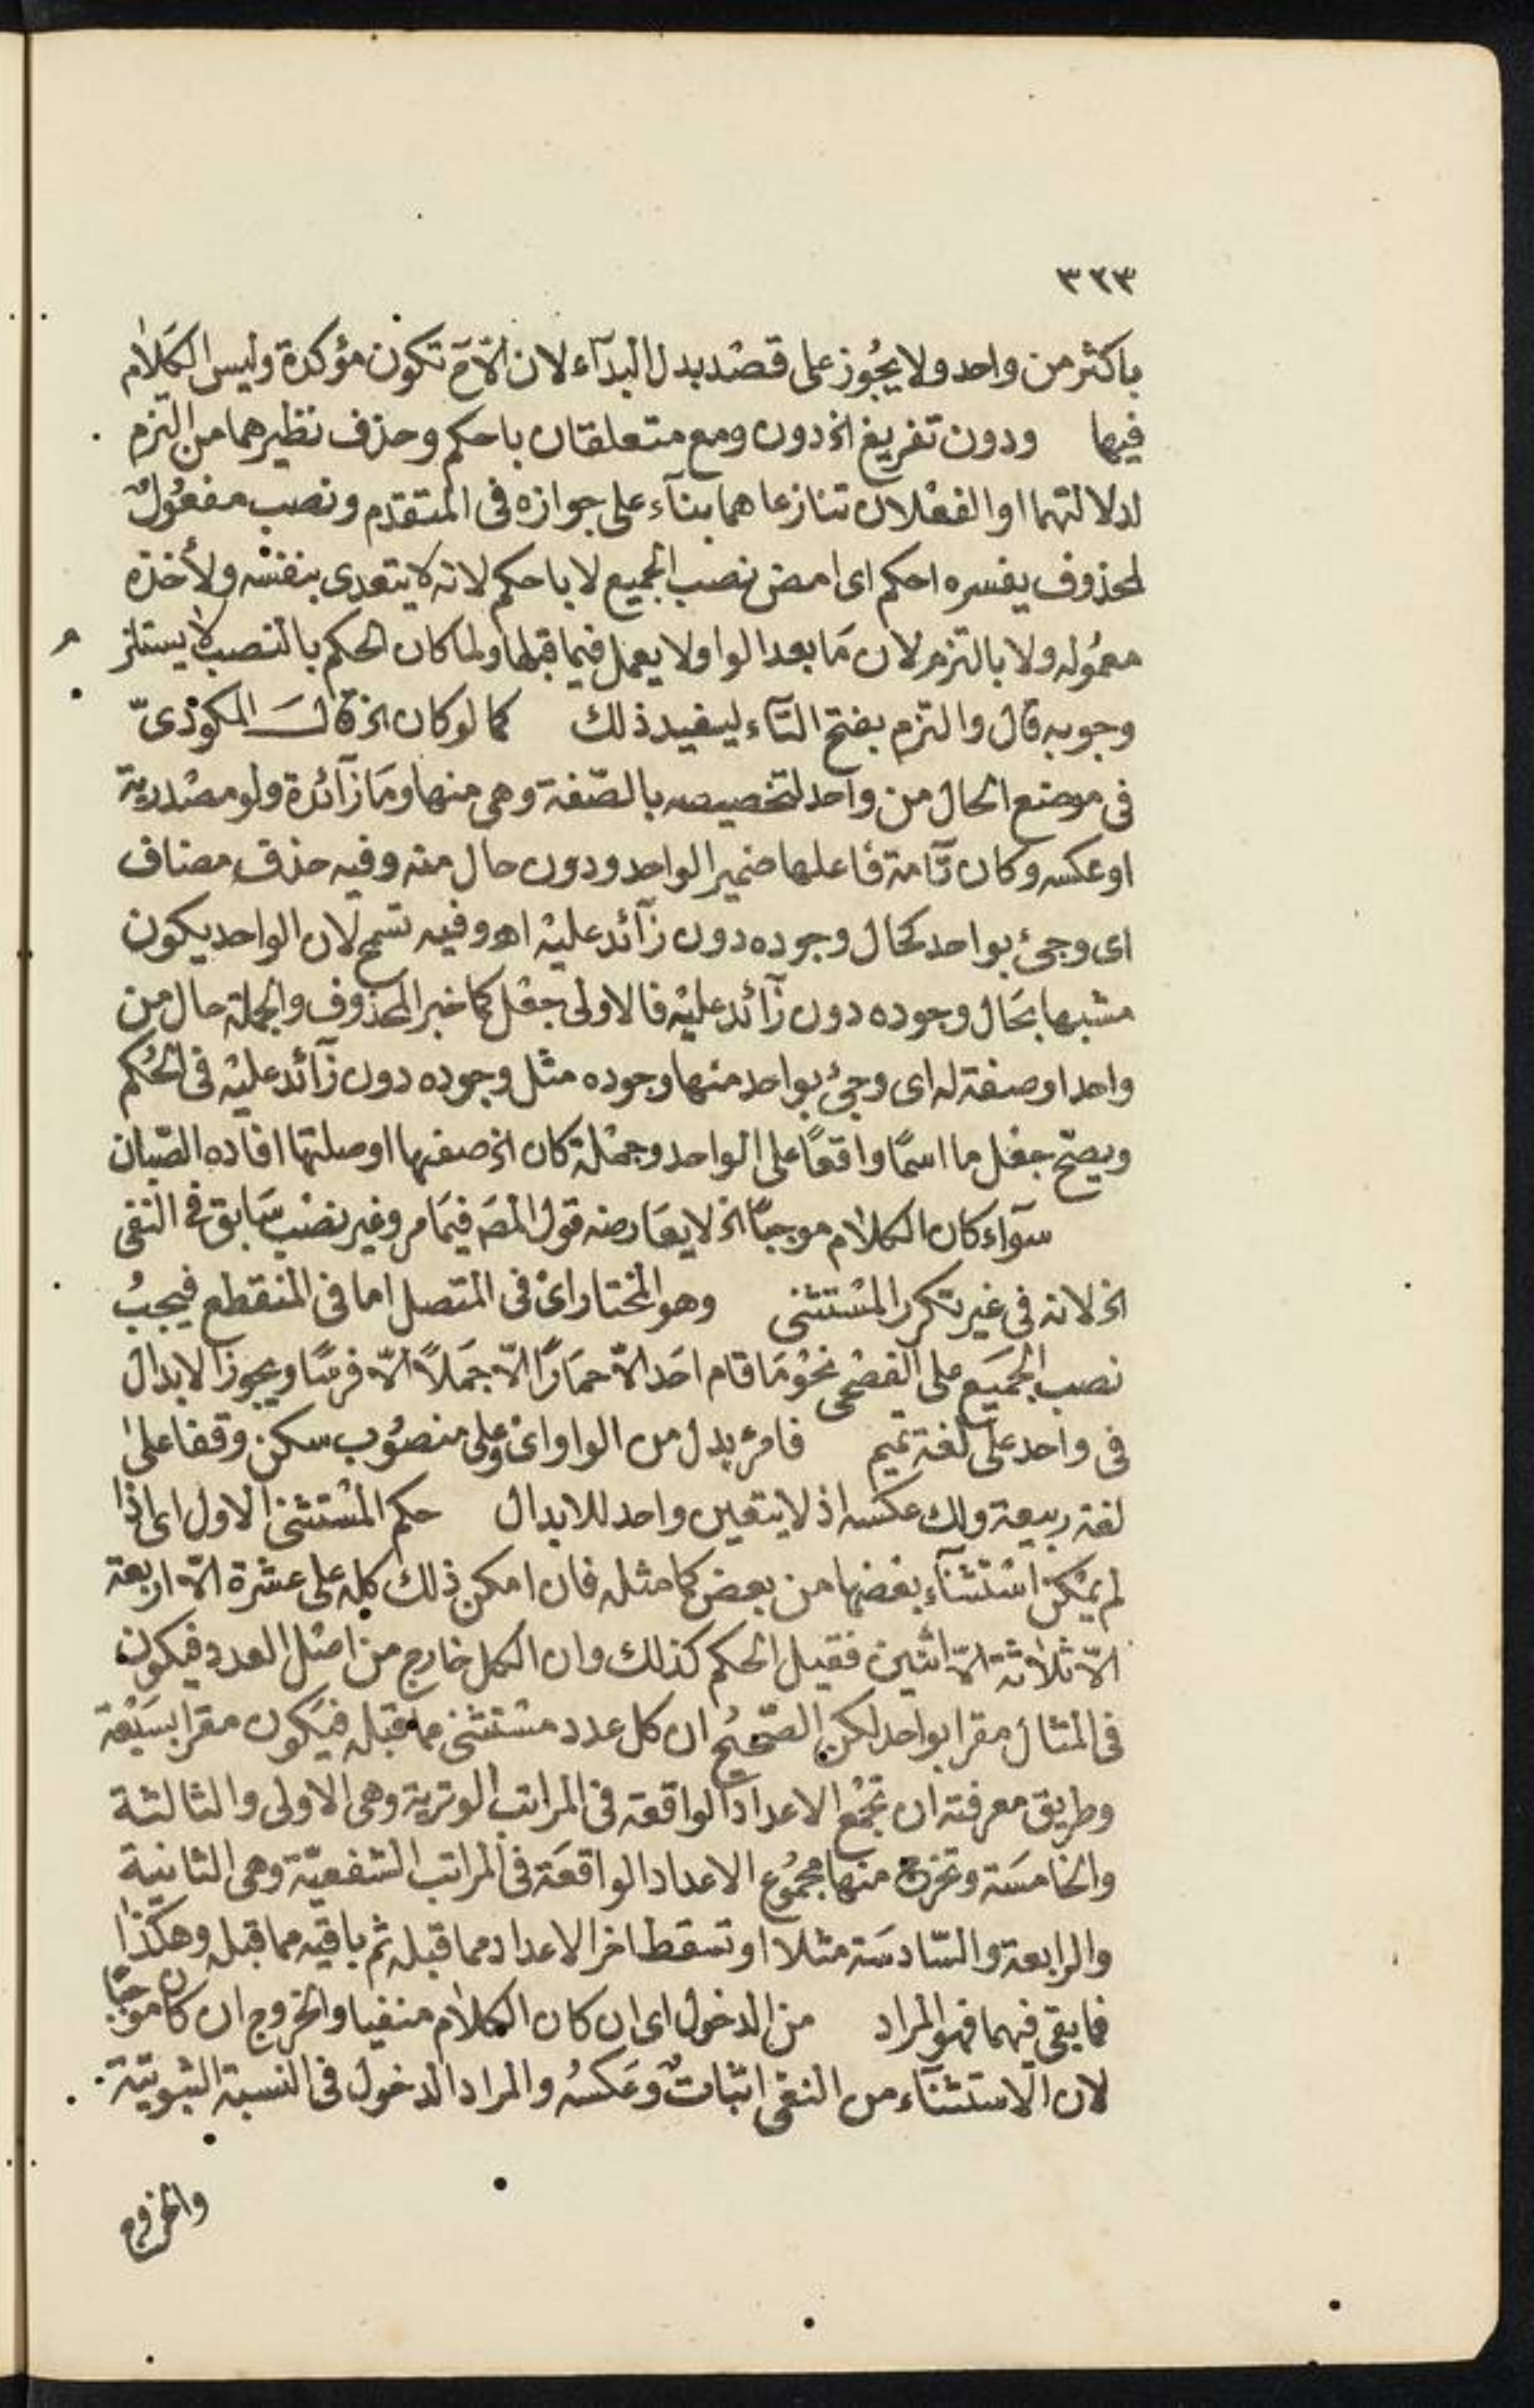 ٣٢٣
باكثر من واحد ولا يجُوز على قصْد بدل البدآء لان الّا ح تكون مؤكدة وليس الكَلام
فيها ودون تفريغ اخ دون ومع متعلقان باحكم وحذف نظيرهما من التزم
لدلالتهما او الفعْلان تنازعاهما بنآء على جوازه فى المتقدم ونصب مفعُول
لمحذوف يفسره احكم اى امض نصب الجميع لا باحكم لانه لا يتعدى بنفسْه ولأخذه
معمُوله ولا بالتزم لان مَا بعد الواو لا يعمل فيما قبلها ولما كان الحكم بالنصب لا يستلز م
وجوبه قال والتزم بفتح التآء ليفيد ذلك كما لو كان اخ قال المكوذىّ
فى موضع الحال من واحد لتخصيصه بالصّفة وهى منها ومَا زآئدة ولو مصْدرية
او عكسه وكان تآمة فاعلها ضمير الواحد ودون حال منه وفيه حذف مضاف
اى وجئ بواحد كحال وجوده دون زآئد عليْه اهـ وفيه تسمح لان الواحد يكون
مشبها بحَال وجوده دون زآئد عليْه فالاولى جعْل كما خبر المحذوف والجملة حال من
واحد او صفة له اى وجئ بواحد منها وجوده مثل وجوده دون زآئد عليْه فى الحُكم
ويصحّ جعْل ما اسمًا واقعًا على الواحد وجمْلة كان اخ صفتها او صلتها افاده الصّبان
سوآء كان الكلام موجبًا اخ لا يعَارضه قول المصَ فيمَا مر وغير نصْب سَابق فى النفى
اخ لانه فى غير تكرر المسْتثنى وهو المختار اىْ فى المتصل اما فى المنقطع فيجبُ
نصب الجمَيع على الفصْحى نحوْ مَا قام احَد الّا حمَارًا الّا جمَلاً الّا فرسًا ويجوز الابدال
فى واحد على لغة تميم فامرؤ بدل من الواو اىْ وعلى منصوُب سكن وقفا على
لغة ربيعة ولك عكسه اذ لا يتعين واحد للابدال حكم المسْتثنى الاول اى اذا
لم يمْكن اسْتثنآء بعْضها من بعض كما مثله فان امكن ذلك كله على عشرة الّا اربعة
الّا ثلاثة الّا اثنين فقيل الحكم كذلك وان الكل خارج من اصْل العدد فيكون
فى المثال مقرا بواحد لكن الصّحيحُ ان كل عدد مسْتثنى مما قبله فيَكون مقرا بسَبْعة
وطريق معرفته ان تجمْع الاعداد الواقعة فى المراتب الوترية وهى الاولى والثالثة
والخامسَة وتخرج منها مجمُوع الاعداد الواقعَة فى المراتب الشفعيّة وهى الثانية
والرابعة والسّادسَة مثلا او تسقط اخر الاعداد مما قبله ثم باقيه مما قبله وهكذا
فما بقى فيهما فهو المراد من الدخول اى ان كان الكلام منفيا والخروج ان كان موجبًا
لان الاستثنآء من النفى اثباتٌ وعَكسُه والمراد الدخول فى النسبة الثبوتية
والخروج